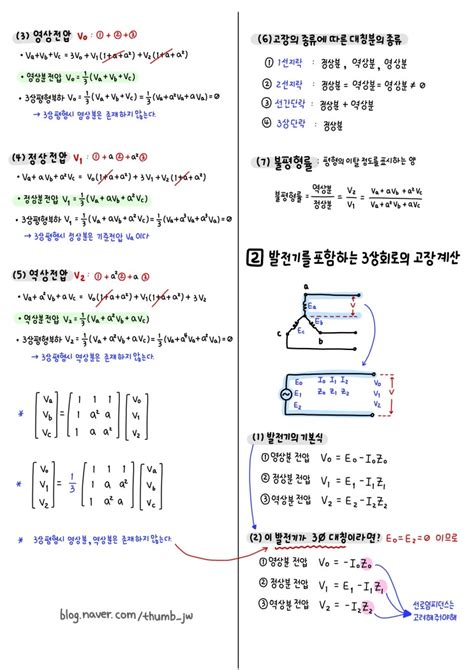 (3) 영상전압 V₀ : ①+②+③
• Va+Vb+Vc = 3V₀+V₁(1+a+a²)+V₂(1+a+a²)
• 영상분전압 V₀=1/3(Va+Vb+Vc)
• 3상평형부하 V₀=1/3(Va+Vb+Vc)=1/3(Va+a²Va+aVa)=0
→ 3상평형시 영상분은 존재하지 않는다.
(4) 정상전압 V₁ : ①+a②+a²③
• Va+aVb+a²Vc = V₀(1+a+a²)+3V₁+V₂(1+a+a²)
• 정상분전압 V₁=1/3(Va+aVb+a²Vc)
• 3상평형부하 V₁=1/3(Va+aVb+a²Vc)=1/3(Va+a³Va+a³Va)=Va
→ 3상평형시 정상분은 기준전압 Va이다
(5) 역상전압 V₂ : ①+a²②+a③
• Va+a²Vb+aVc = V₀(1+a+a²)+V₁(1+a+a²)+3V₂
• 역상분전압 V₂=1/3(Va+a²Vb+aVc)
• 3상평형부하 V₂=1/3(Va+a²Vb+aVc)=1/3(Va+a⁴Va+a²Va)=0
→ 3상평형시 역상분은 존재하지 않는다.
* [Va Vb Vc] = [1 1 1 1 a² a 1 a a²] [V₀ V₁ V₂]
* [V₀ V₁ V₂] = 1/3 [1 1 1 1 a a² 1 a² a] [Va Vb Vc]
* 3상평형시 영상분, 역상분은 존재하지 않는다.
blog.naver.com/thumb_jw
(6) 고장의 종류에 따른 대칭분의 종류
① 1선지락 : 정상분, 역상분, 영상분
② 2선지락 = 정상분=역상분=영상분≠0
③ 선간단락 : 정상분+역상분
④ 3상단락 : 정상분
(7) 불평형률 : 평형의 이탈 정도를 표시하는 양
불평형률 = 역상분/정상분 = V₂/V₁ = Va+a²Vb+aVc/Va+aVb+a²Vc
2 발전기를 포함하는 3상회로의 고장계산
a
Ea
V
Eb
c
b
E₀ I₀ I₁ I₂ V₀
E₁ Z₀ Z₁ Z₂ V₁ V
E₂ V₂
(1) 발전기의 기본식
① 영상분 전압 V₀ = E₀-I₀Z₀
② 정상분 전압 V₁ = E₁-I₁Z₁
③ 역상분 전압 V₂ = E₂-I₂Z₂
(2) 이 발전기가 3Ø 대칭이라면? E₀=E₂=0 이므로
① 영상분 전압 V₀ = -I₀Z₀
② 정상분 전압 V₁ = E₁-I₁Z₁
③ 역상분 전압 V₂ = -I₂Z₂
선로임피던스는
고려해주어야해